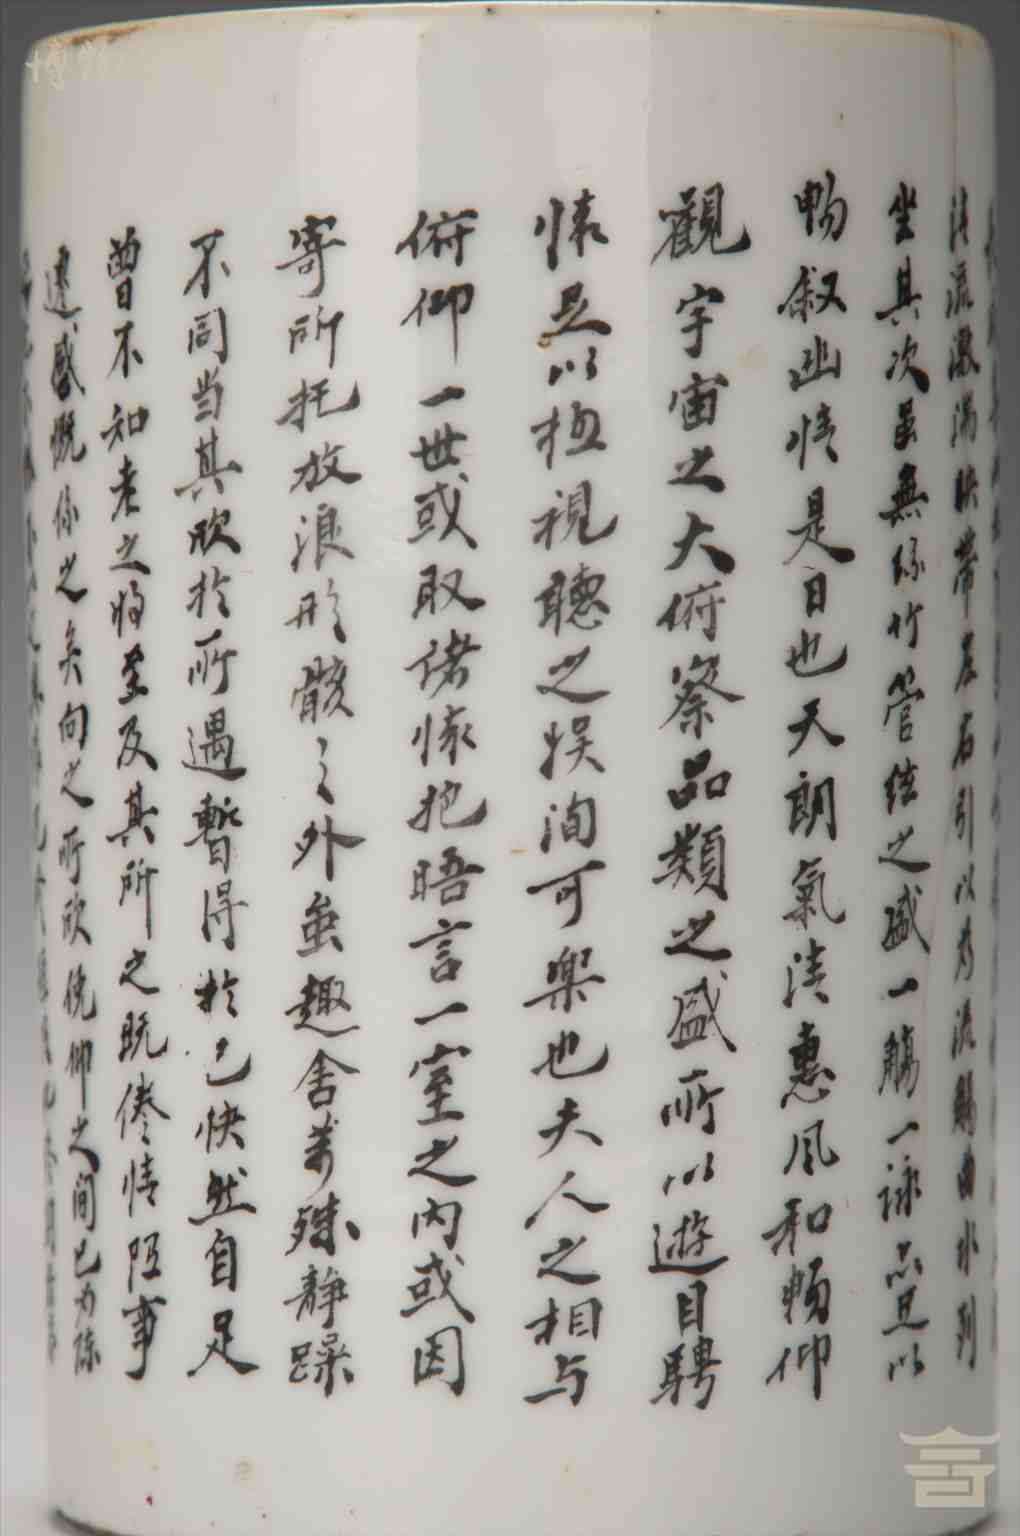 清流激湍映帶左右引以為流觴曲水列
坐其次虽無絲竹管絃之盛一觴一詠亦足以
畅叙幽情是日也天朗氣清惠风和畅仰
觀宇宙之大俯察品類之盛所以遊目騁
懐足以极視聽之娱洵可樂也夫人之相与
俯仰一世或取诸懐抱晤言一室之内或因
寄所托放浪形骸之外虽趣舍萬殊静躁
不同当其欣於所遇暫得於己快然自足
曾不知老之将至及其所之既倦情随事
遷感慨係之矣向之所欣俛仰之间已为陈